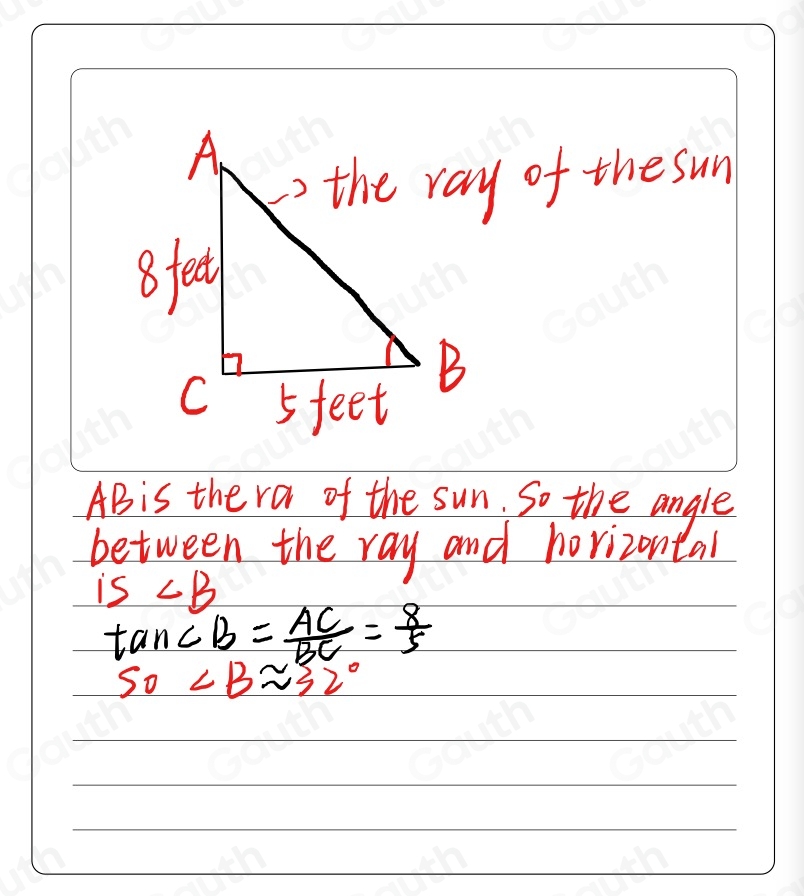 A
the ray of the sun
8 feet
C
B
5 feet
AB is the ra of the sun. So the angle
between the ray and horizontal
is ∠B
tan∠B = AC/BC = 8/5
So ∠B ≈ 32°
Gauth